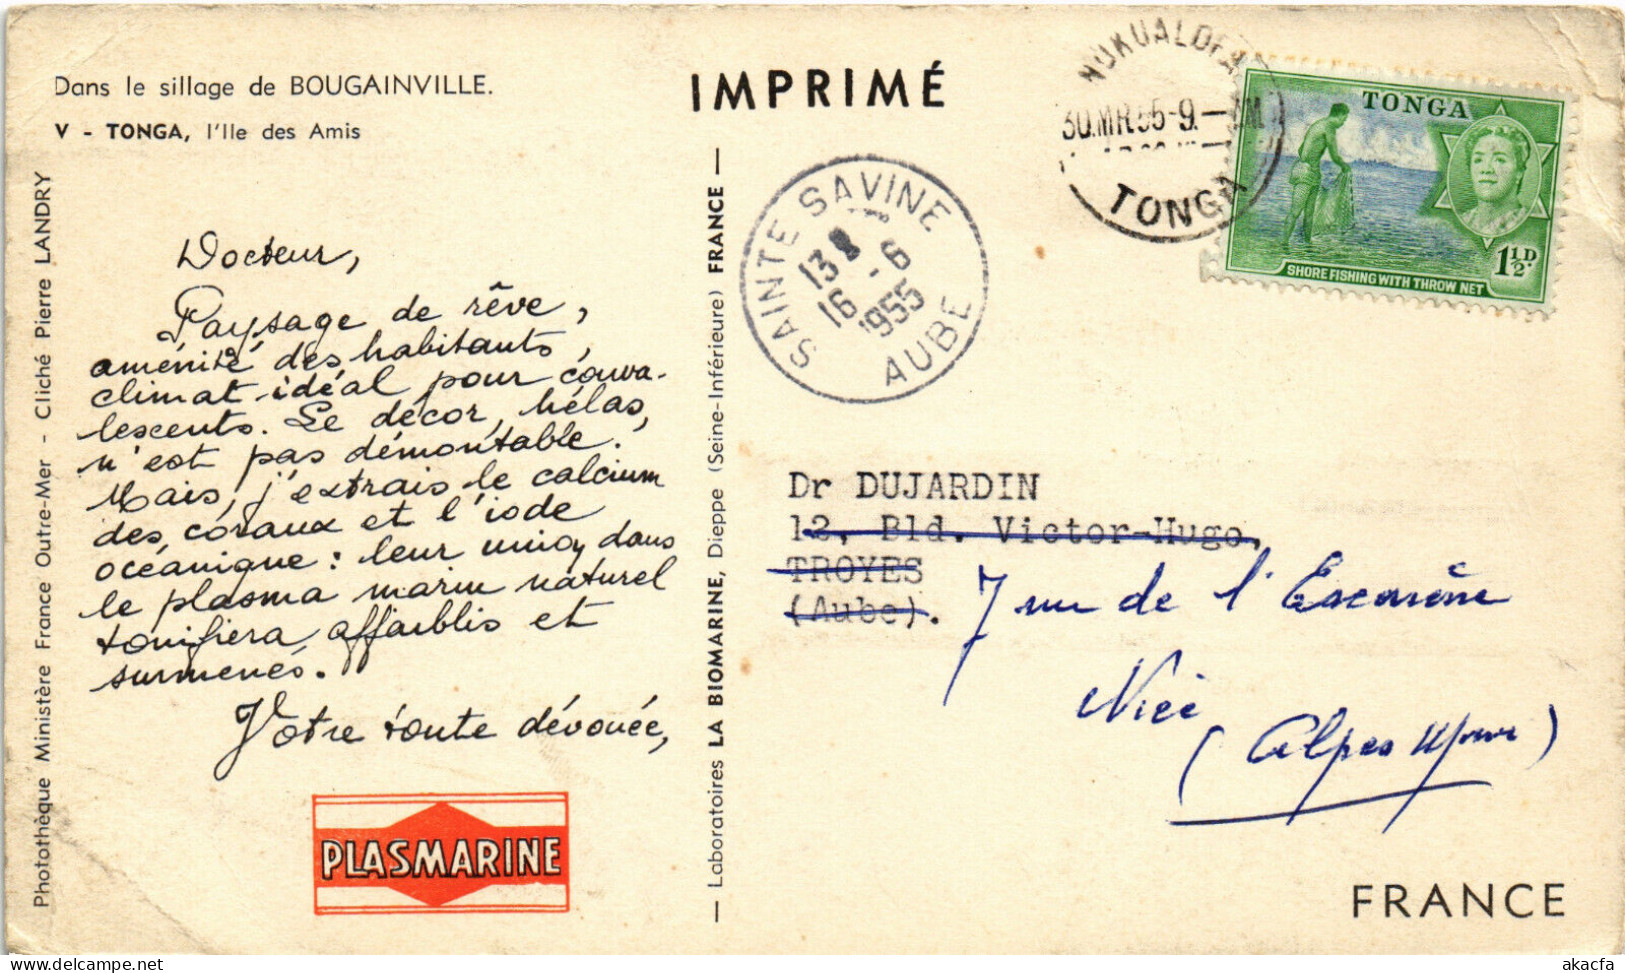 Dans le sillage de BOUGAINVILLE.
V - TONGA, l'Ile des Amis
Photothèque Ministère France Outre-Mer - Cliché Pierre LANDRY
Docteur,
Paysage de rêve,
aménité des habitants,
climat idéal pour conva-
lescents. Le décor, hélas,
n'est pas démontable.
Mais, j'extrais le calcium
des coraux et l'iode
océanique : leur union dans
le plasma marin naturel
tonifiera affaiblis et
surmenés.
Votre toute dévouée,
PLASMARINE
— Laboratoires LA BIOMARINE, Dieppe (Seine-Inférieure) FRANCE —
IMPRIMÉ
SAINTE SAVINE
13
16 - 6
1955
AUBE
NUKUALOFA
30.MR.55-9.—AM
TONGA
TONGA
SHORE FISHING WITH THROW NET
1½D.
Dr DUJARDIN
12, Bld. Victor-Hugo,
TROYES
(Aube).
7 rue de l'Escarène
Nice
(Alpes Mmes)
FRANCE
akacfa